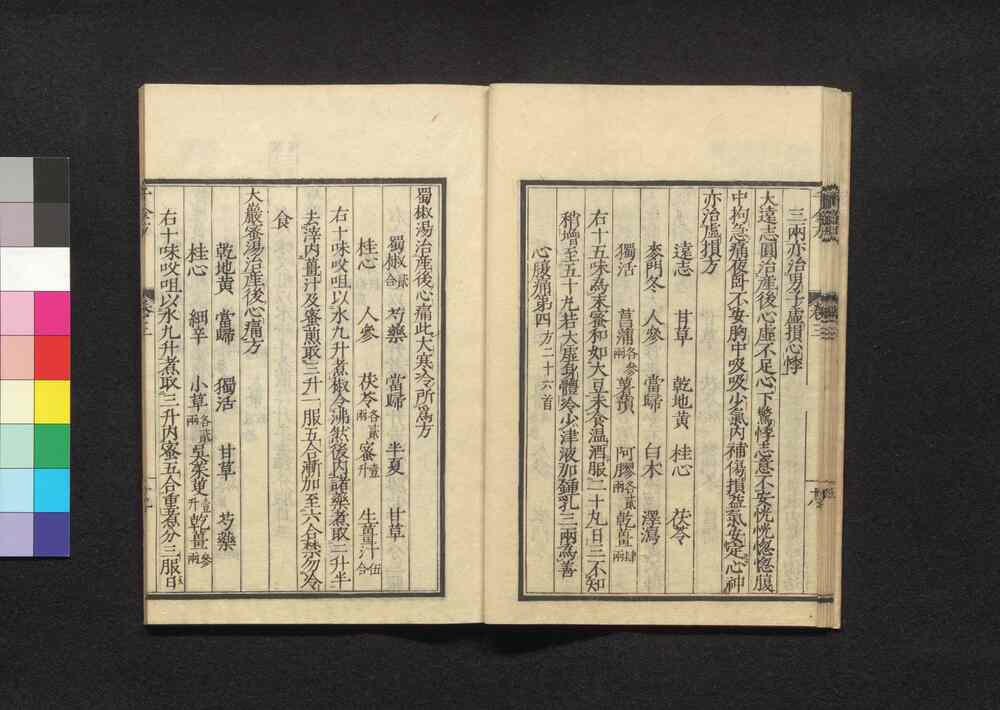 三兩亦治男子虛損心悸
大遠志圓治產後心虛不足心下驚悸志意不安恍恍惚惚腹
中拘急痛夜臥不安胸中吸吸少氣內補傷損益氣安定心神
亦治虛損方
遠志 甘草 乾地黃 桂心 茯苓
麥門冬 人參 當歸 白朮 澤瀉
獨活 菖蒲各參兩 薯蕷 阿膠各貳兩 乾薑肆兩
右十五味為末蜜和如大豆未食溫酒服二十丸日三不知
稍增至五十丸若大虛身體冷少津液加鍾乳三兩為善
心腹痛第四 方二十六首
蜀椒湯治產後心痛此大寒冷所為方
蜀椒貳合 芍藥 當歸 半夏 甘草
桂心 人參 茯苓各貳兩 蜜壹升 生薑汁伍合
右十味㕮咀以水九升煮椒令沸然後內諸藥煮取二升半
去滓內薑汁及蜜煎取三升一服五合漸加至六合禁勿冷
食
大巖蜜湯治產後心痛方
乾地黃 當歸 獨活 甘草 芍藥
桂心 細辛 小草各貳兩 吳茱萸壹升 乾薑參兩
右十味㕮咀以水九升煮取三升內蜜五合重煮分三服日